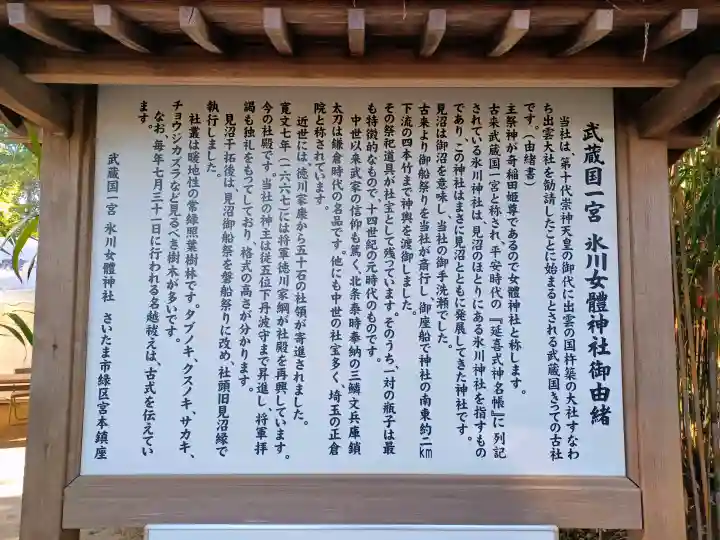 武蔵国一宮 氷川女體神社御由緒
当社は、第十代崇神天皇の御代に出雲の国杵築の大社すなわ
ち出雲大社を勧請したことに始まるとされる武蔵国きっての古社
です。(由緒書)
主祭神が奇稲田姫尊であるので女體神社と称します。
古来武蔵国一宮と称され、平安時代の『延喜式神名帳』に列記
されている氷川神社は、見沼のほとりにある氷川神社を指すもの
であり、この神社はまさに見沼とともに発展してきた神社です。
見沼は御沼を意味し、当社の御手洗瀬でした。
古来より御船祭りを当社が斎行し、御座船で神社の南東約二㎞
下流の四本竹まで神輿を渡御しました。
その祭祀道具が社宝として残っています。そのうち、一対の瓶子は最
も特徴的なもので、十四世紀の元時代のものです。
中世以来武家の信仰も篤く、北条泰時奉納の三鱗文兵庫鎖
太刀は鎌倉時代の名品です。他にも中世の社宝多く、埼玉の正倉
院と称されています。
近世には、徳川家康から五十石の社領が寄進されました。
寛文七年(一六六七)には将軍徳川家綱が社殿を再興しています。
今の社殿です。当社の神主は従五位下丹波守まで昇進し、将軍拝
謁も独礼をもってしており、格式の高さが分かります。
見沼干拓後は、見沼御船祭りを磐船祭りに改め、社頭旧見沼縁で
執行しました。
社叢は暖地性の常緑照葉樹林です。タブノキ、クスノキ、サカキ、
チョウジカズラなど見るべき樹木が多いです。
なお、毎年七月三十一日に行われる名越祓えは、古式を伝えてい
ます。
武蔵国一宮 氷川女體神社 さいたま市緑区宮本鎮座